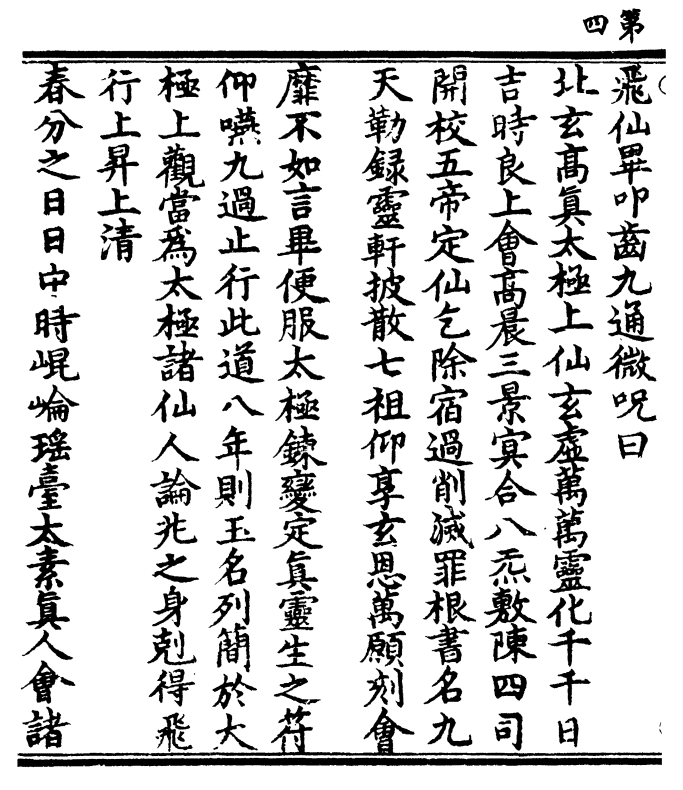 第四
飛仙畢叩齒九通微呪曰
北玄高眞太極上仙玄虛萬萬靈化千千日
吉時良上會高晨三景㝠合八炁敷陳四司
開校五帝定仙乞除宿過削滅罪根書名九
天勒録靈軒披散七祖仰享玄恩萬願剋會
靡不如言畢便服太極鍊變定眞靈生之符
仰嚥九過止行此道八年則玉名列簡於大
極上觀當爲太極諸仙人論兆之身剋得飛
行上昇上清
春分之日日中時崐崘瑶臺太素眞人會諸